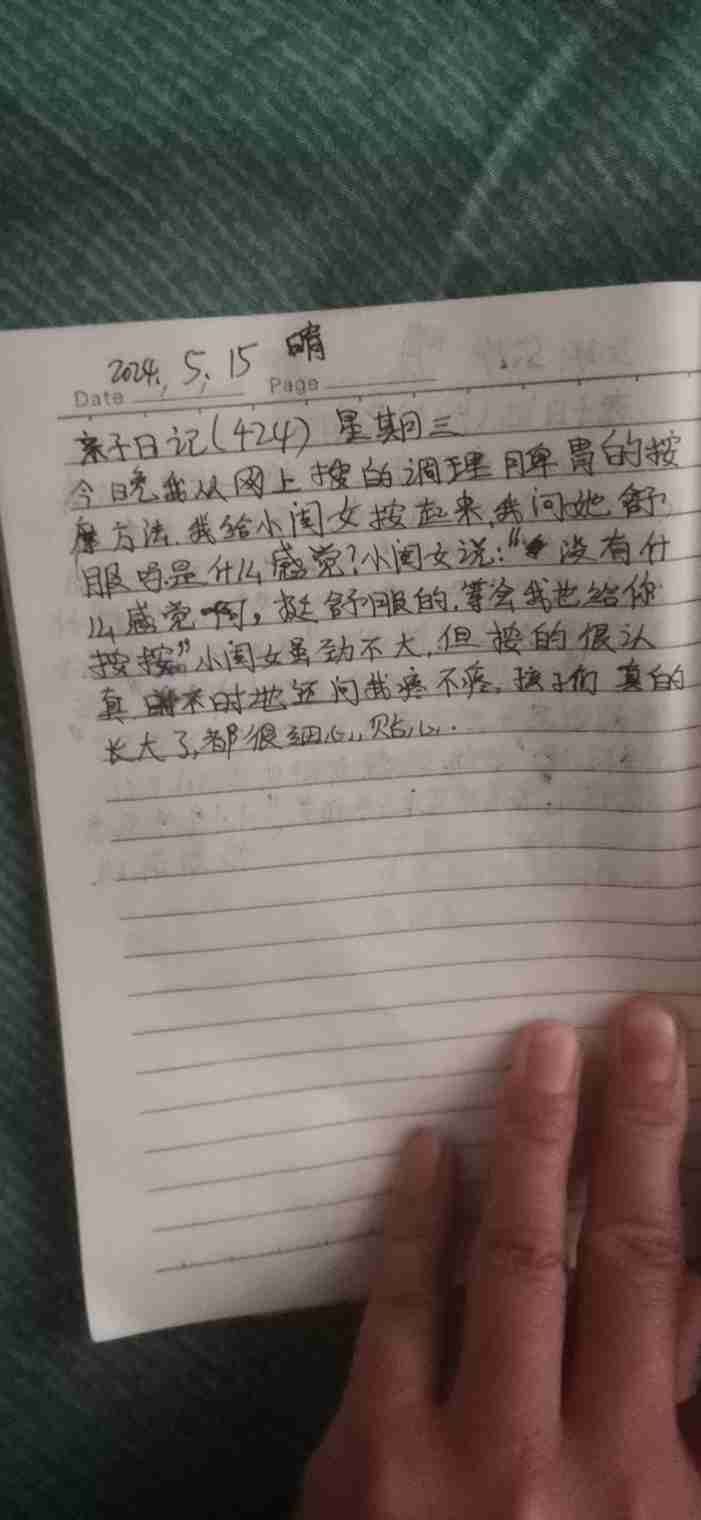 2024.5.15 晴
Date Page
亲子日记(424) 星期三
今晚我从网上搜的调理脾胃的按
摩方法.我给小闺女按起来,我问她舒
服吗是什么感觉?小闺女说:“没有什
么感觉啊,挺舒服的.等会我也给你
按按”小闺女虽劲不大,但按的很认
真 时地还问我疼不疼.孩子们真的
长大了,都很细心,贴心.